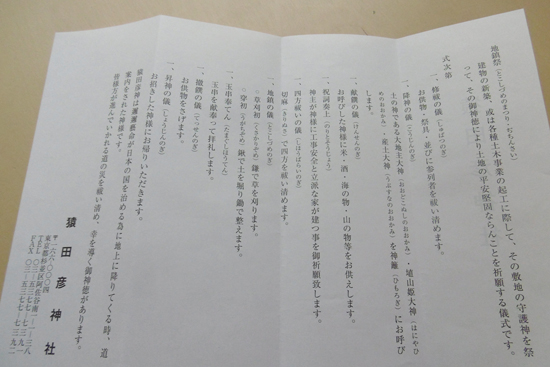 地鎮祭(とこしづめのまつり・ぢちんさい)
建物の新築、或は各種土木事業の起工に際して、その敷地の守護神を祭
って、その御神徳により土地の平安堅固ならんことを祈願する儀式です。
式次第
一、修祓の儀(しゅばつのぎ)
お供物・祭具・並びに参列者を祓い清めます。
一、降神の儀(こうしんのぎ)
土の神である大地主大神(おおとこぬしのおおかみ)・埴山姫大神(はにやひ
めのおおかみ)・産土大神(うぶすなのおおかみ)を神籬(ひもろぎ)にお呼び
します。
一、献饌の儀(けんせんのぎ)
お呼びした神様に米・酒・海の物・山の物等をお供えします。
一、祝詞奏上(のりとそうじょう)
神主が神様に工事安全と立派な家が建つ事を御祈願致します。
一、四方祓いの儀(しほうばらいのぎ)
切麻(きりぬさ)で四方を祓い清めます。
一、地鎮の儀(とこしづめのぎ)
○草刈初(くさかりぞめ)鎌で草を刈ります。
○穿初(うがちぞめ)鍬で土を掘り鋤で整えます。
一、玉串奉てん(たまぐしほうてん)
玉串を献奉って拝礼します。
一、徹饌の儀(てっせんのぎ)
お供物をさげます。
一、昇神の儀(しょうじんのぎ)
お招きした神様にお帰りいただきます。
猿田彦神は瓊瓊藝命が日本の国を治める為に地上に降りてくる時、道
案内をされた神様です。
皆様方が進んでいかれる道の災を祓い清め、幸を導く御神徳があります。
猿田彦神社
東京都杉並区阿佐谷南一-一-三八
TEL 〇三-五三七七-七三九一
FAX 〇三-五三七七-七三九二